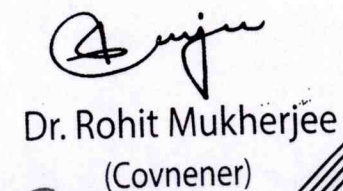 Dr. Rohit Mukherjee
(Covnener)